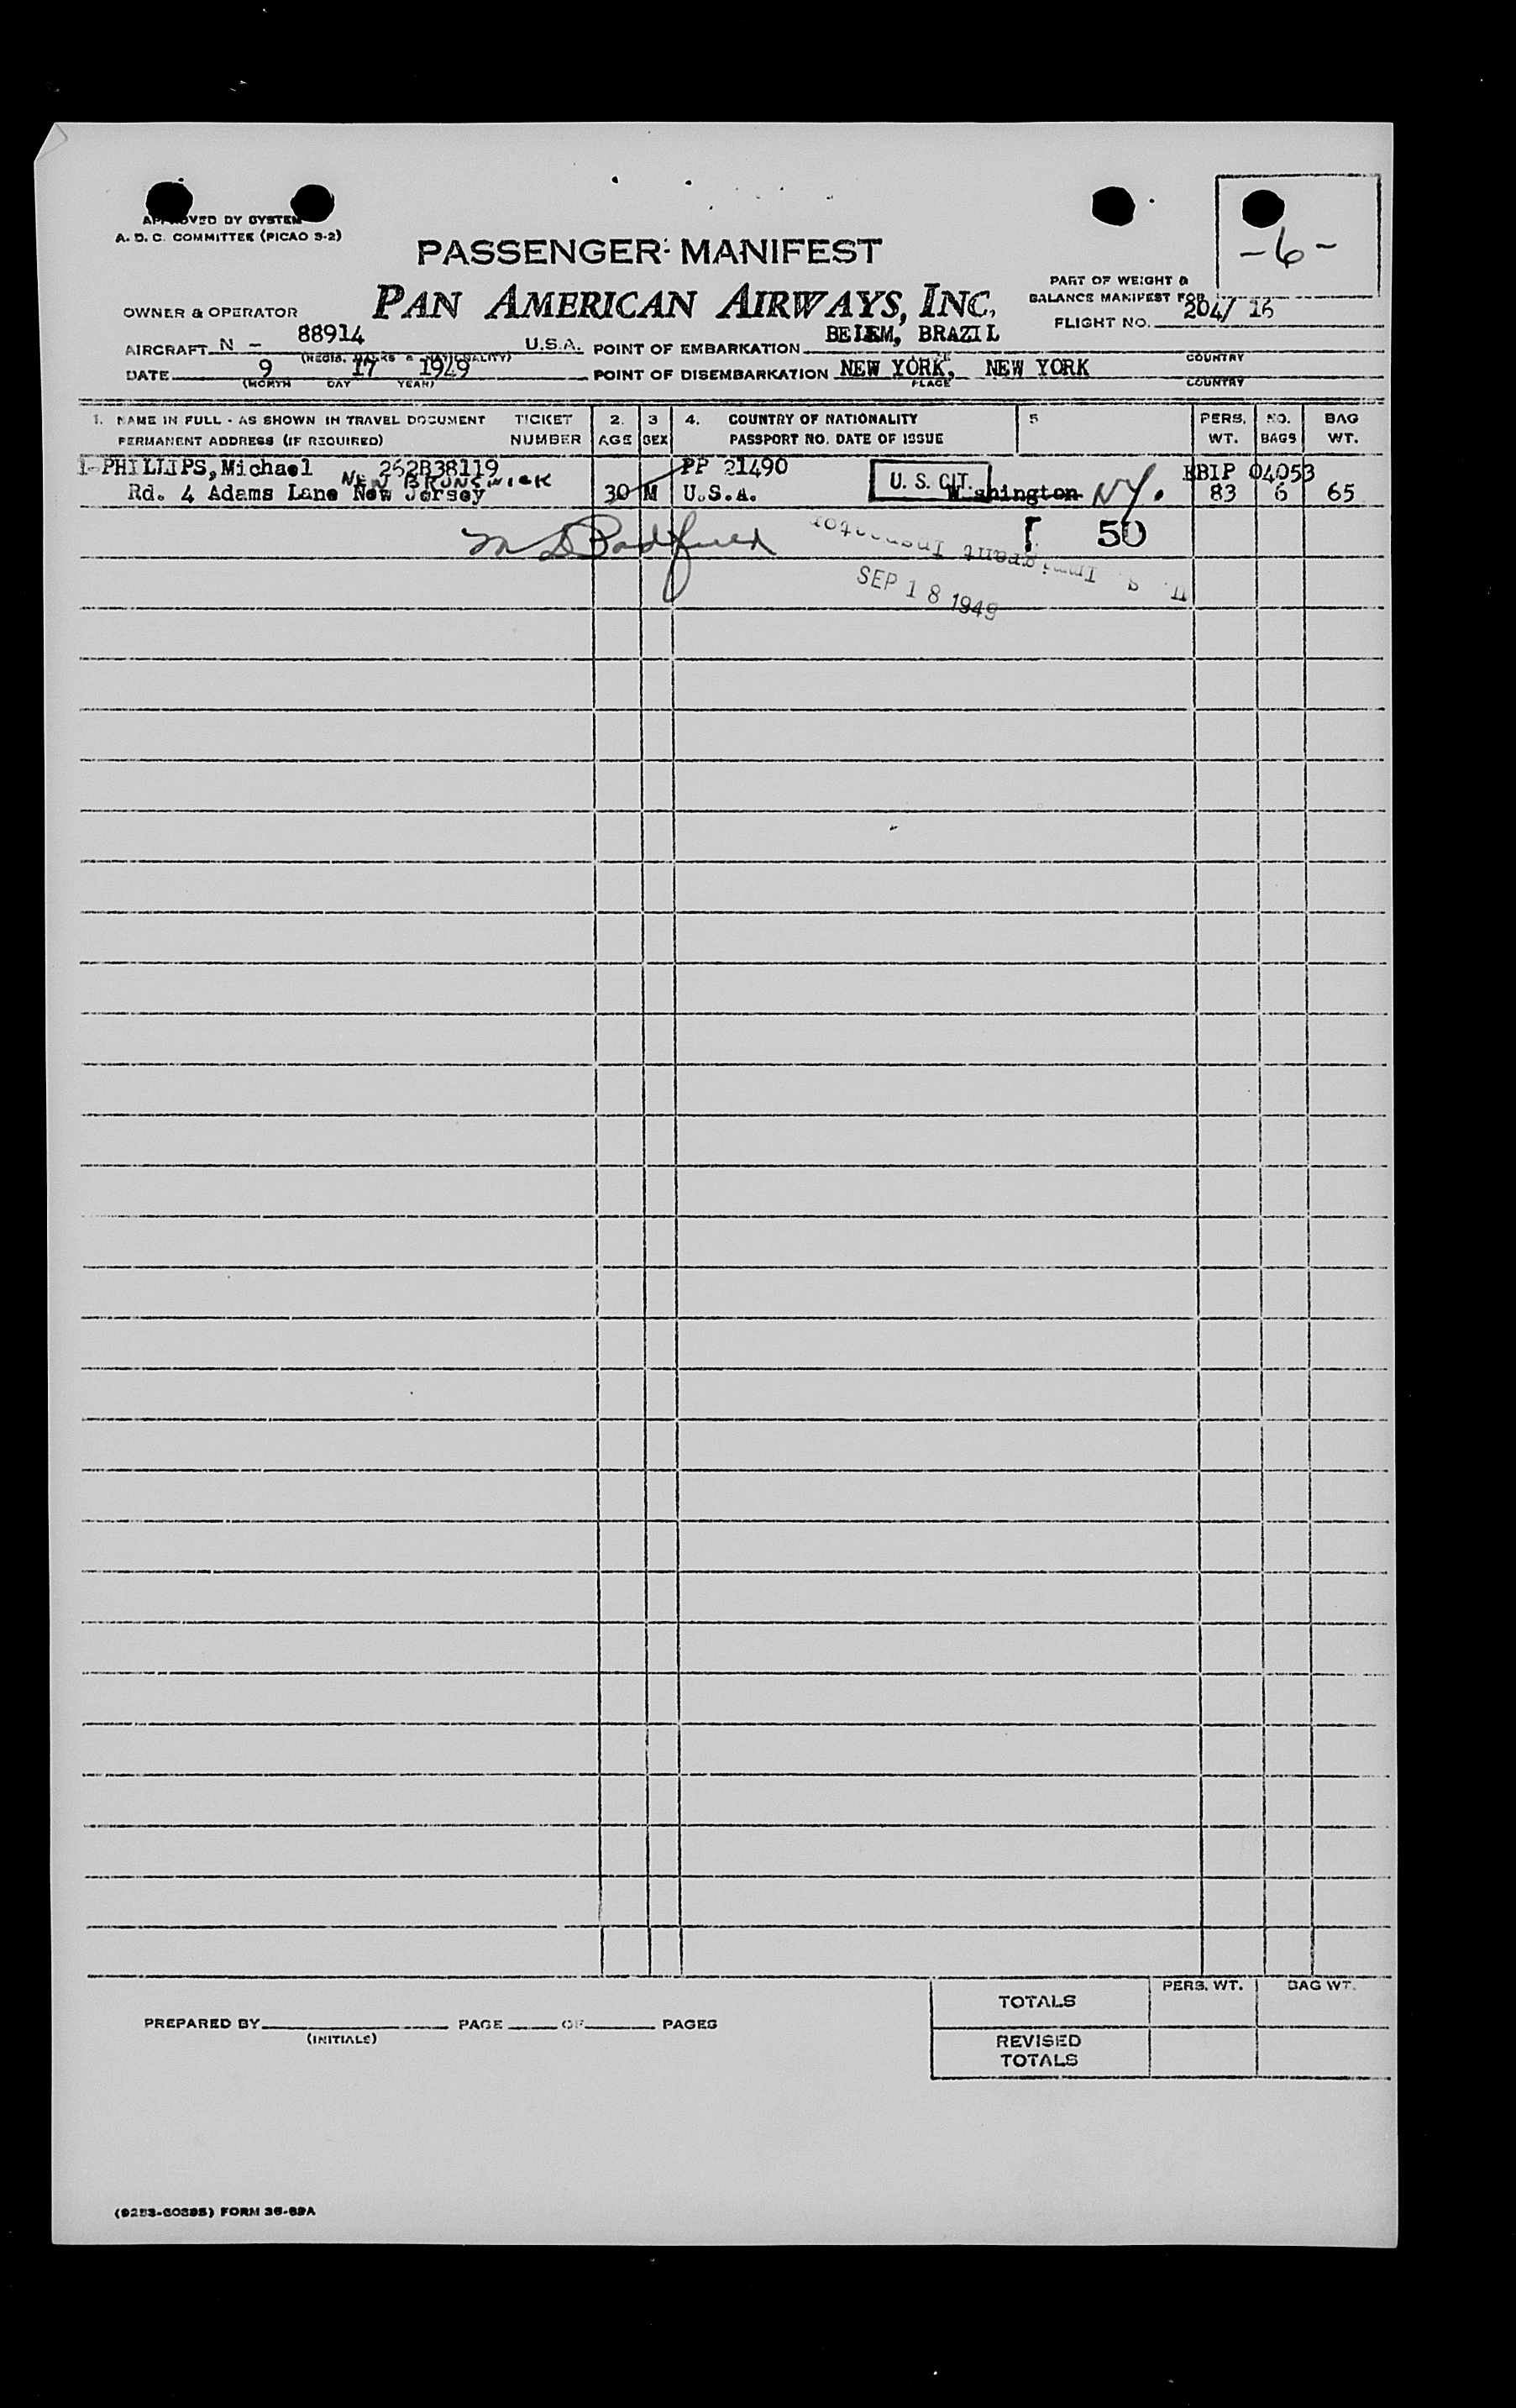 APPROVED BY SYSTEM
A. D. C. COMMITTEE (PICAO S-2)
-6-
PASSENGER MANIFEST
PAN AMERICAN AIRWAYS, INC.
OWNER & OPERATOR
PART OF WEIGHT &
BALANCE MANIFEST FOR
FLIGHT NO. 204/ 16
AIRCRAFT N - 88914 U.S.A. POINT OF EMBARKATION BELEM, BRAZIL
(REGIS. MARKS & NATIONALITY) COUNTRY
DATE 9 17 1949 POINT OF DISEMBARKATION NEW YORK, NEW YORK
(MONTH DAY YEAR) PLACE COUNTRY
1. NAME IN FULL - AS SHOWN IN TRAVEL DOCUMENT TICKET 2. 3 4. COUNTRY OF NATIONALITY 5 PERS. NO. BAG
PERMANENT ADDRESS (IF REQUIRED) NUMBER AGE SEX PASSPORT NO. DATE OF ISSUE WT. BAGS WT.
1-PHILLIPS, Michael 262B38119 PP 21490 04053
NEW BRUNSWICK
Rd. 4 Adams Lane New Jersey 30 M U.S.A. U. S. CIT. Washington NY. 83 6 65
50
U. S. Immigrant Inspector
SEP 18 1949
TOTALS PERS. WT. BAG WT.
PREPARED BY PAGE OF PAGES
(INITIALS)
REVISED
TOTALS
FORM 36-69A